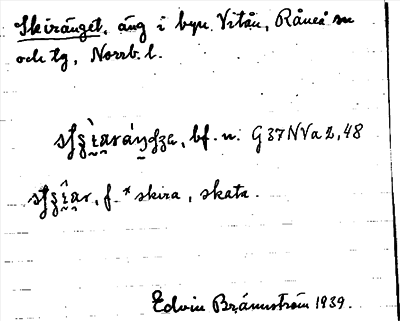 Skiränget, äng i byn Vitån, Råneå sn
och tg, Norrb. l.
bf. n. G 37 N V a 2, 48
f. *skira, skata.
Edvin Brännström 1939.